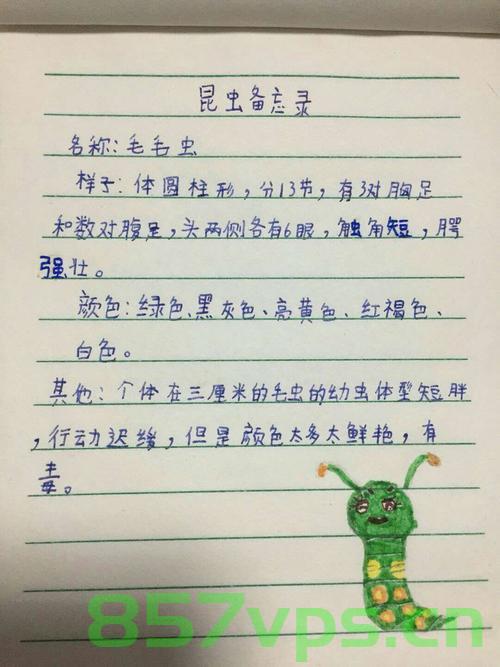 昆虫备忘录
名称：毛毛虫
样子：体圆柱形，分13节，有3对胸足
和数对腹足，头两侧各有6眼，触角短，腭
强壮。
颜色：绿色、黑灰色、亮黄色、红褐色、
白色。
其他：个体在三厘米的毛虫的幼虫体型短胖
，行动迟缓，但是颜色太多太鲜艳，有
毒。
857vps.cn